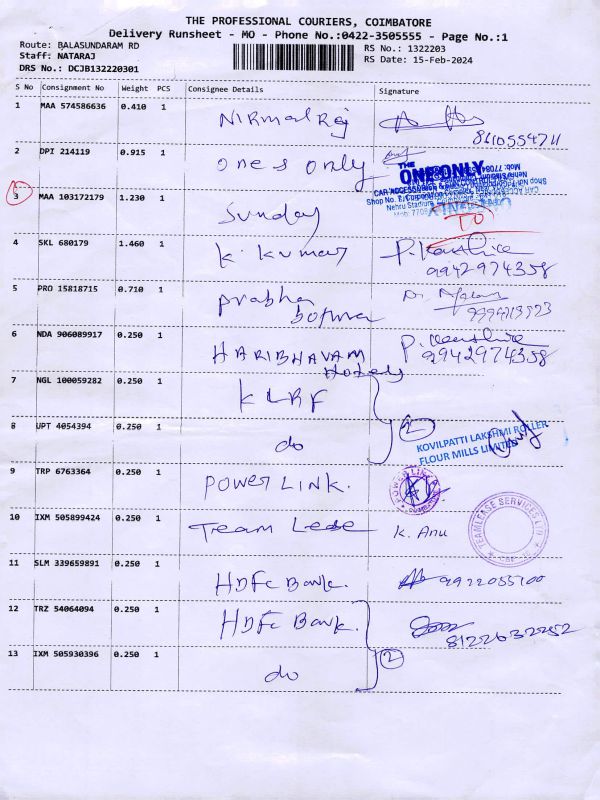 THE PROFESSIONAL COURIERS, COIMBATORE
Delivery Runsheet - MO - Phone No.:0422-3505555 - Page No.:1
Route: BALASUNDARAM RD
RS No.: 1322203
Staff: NATARAJ
RS Date: 15-Feb-2024
DRS No.: DCJB132220301
S No Consignment No Weight PCS Consignee Details Signature
1 MAA 574586636 0.410 1 Nirmal Raj
2 DPI 214119 0.915 1 ones only
THE
ONE ONLY
3 MAA 103172179 1.230 1 Sunday
TO
4 SKL 680179 1.460 1 K. Kumar P. Kausalica
9942974358
5 PRO 15818715 0.710 1 Prabha
6 NDA 906089917 0.250 1 HARIBHAVAM
Hotels
9942974358
7 NGL 100059282 0.250 1 KLRF
2
8 UPT 4054394 0.250 1 do
KOVILPATTI LAKSHMI ROLLER
FLOUR MILLS LIMITED
9 TRP 6763364 0.250 1 POWER LINK.
POWER LINK
10 IXM 505899424 0.250 1 Team Lese K. Anu
TEAMLEASE SERVICES LTD
11 SLM 339659891 0.250 1 HDFC Bank. 9922055700
12 TRZ 54064094 0.250 1 HDFC Bank.
8122632252
13 IXM 505930396 0.250 1 do
2